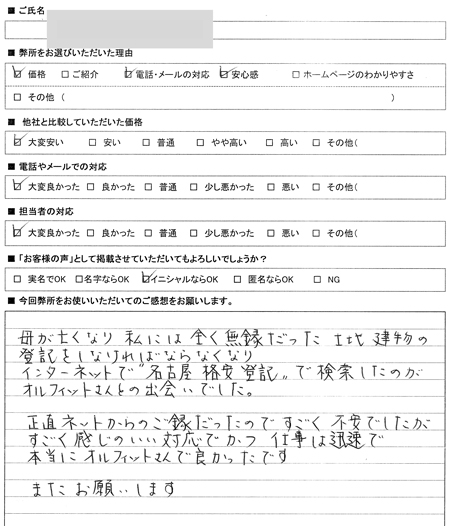 ■ ご氏名
■ 弊所をお選びいただいた理由
☑ 価格 □ ご紹介 ☑ 電話・メールの対応 ☑ 安心感 □ ホームページのわかりやすさ
□ その他 ( )
■ 他社と比較していただいた価格
☑ 大変安い □ 安い □ 普通 □ やや高い □ 高い □ その他(
■ 電話やメールでの対応
☑ 大変良かった □ 良かった □ 普通 □ 少し悪かった □ 悪い □ その他(
■ 担当者の対応
☑ 大変良かった □ 良かった □ 普通 □ 少し悪かった □ 悪い □ その他(
■「お客様の声」として掲載させていただいてもよろしいでしょうか？
□ 実名でOK □ 名字ならOK ☑ イニシャルならOK □ 匿名ならOK □ NG
■ 今回弊所をお使いいただいてのご感想をお願いします。
母が亡くなり 私には 全く無縁だった 土地 建物の
登記をしなければならなくなり
インターネットで"名古屋 格安 登記"で検索したのが
オルフィットさんとの出会いでした。
正直ネットからのご縁だったので すごく 不安でしたが
すごく感じのいい対応でかつ 仕事は迅速で
本当に オルフィットさんで良かったです
またお願いします